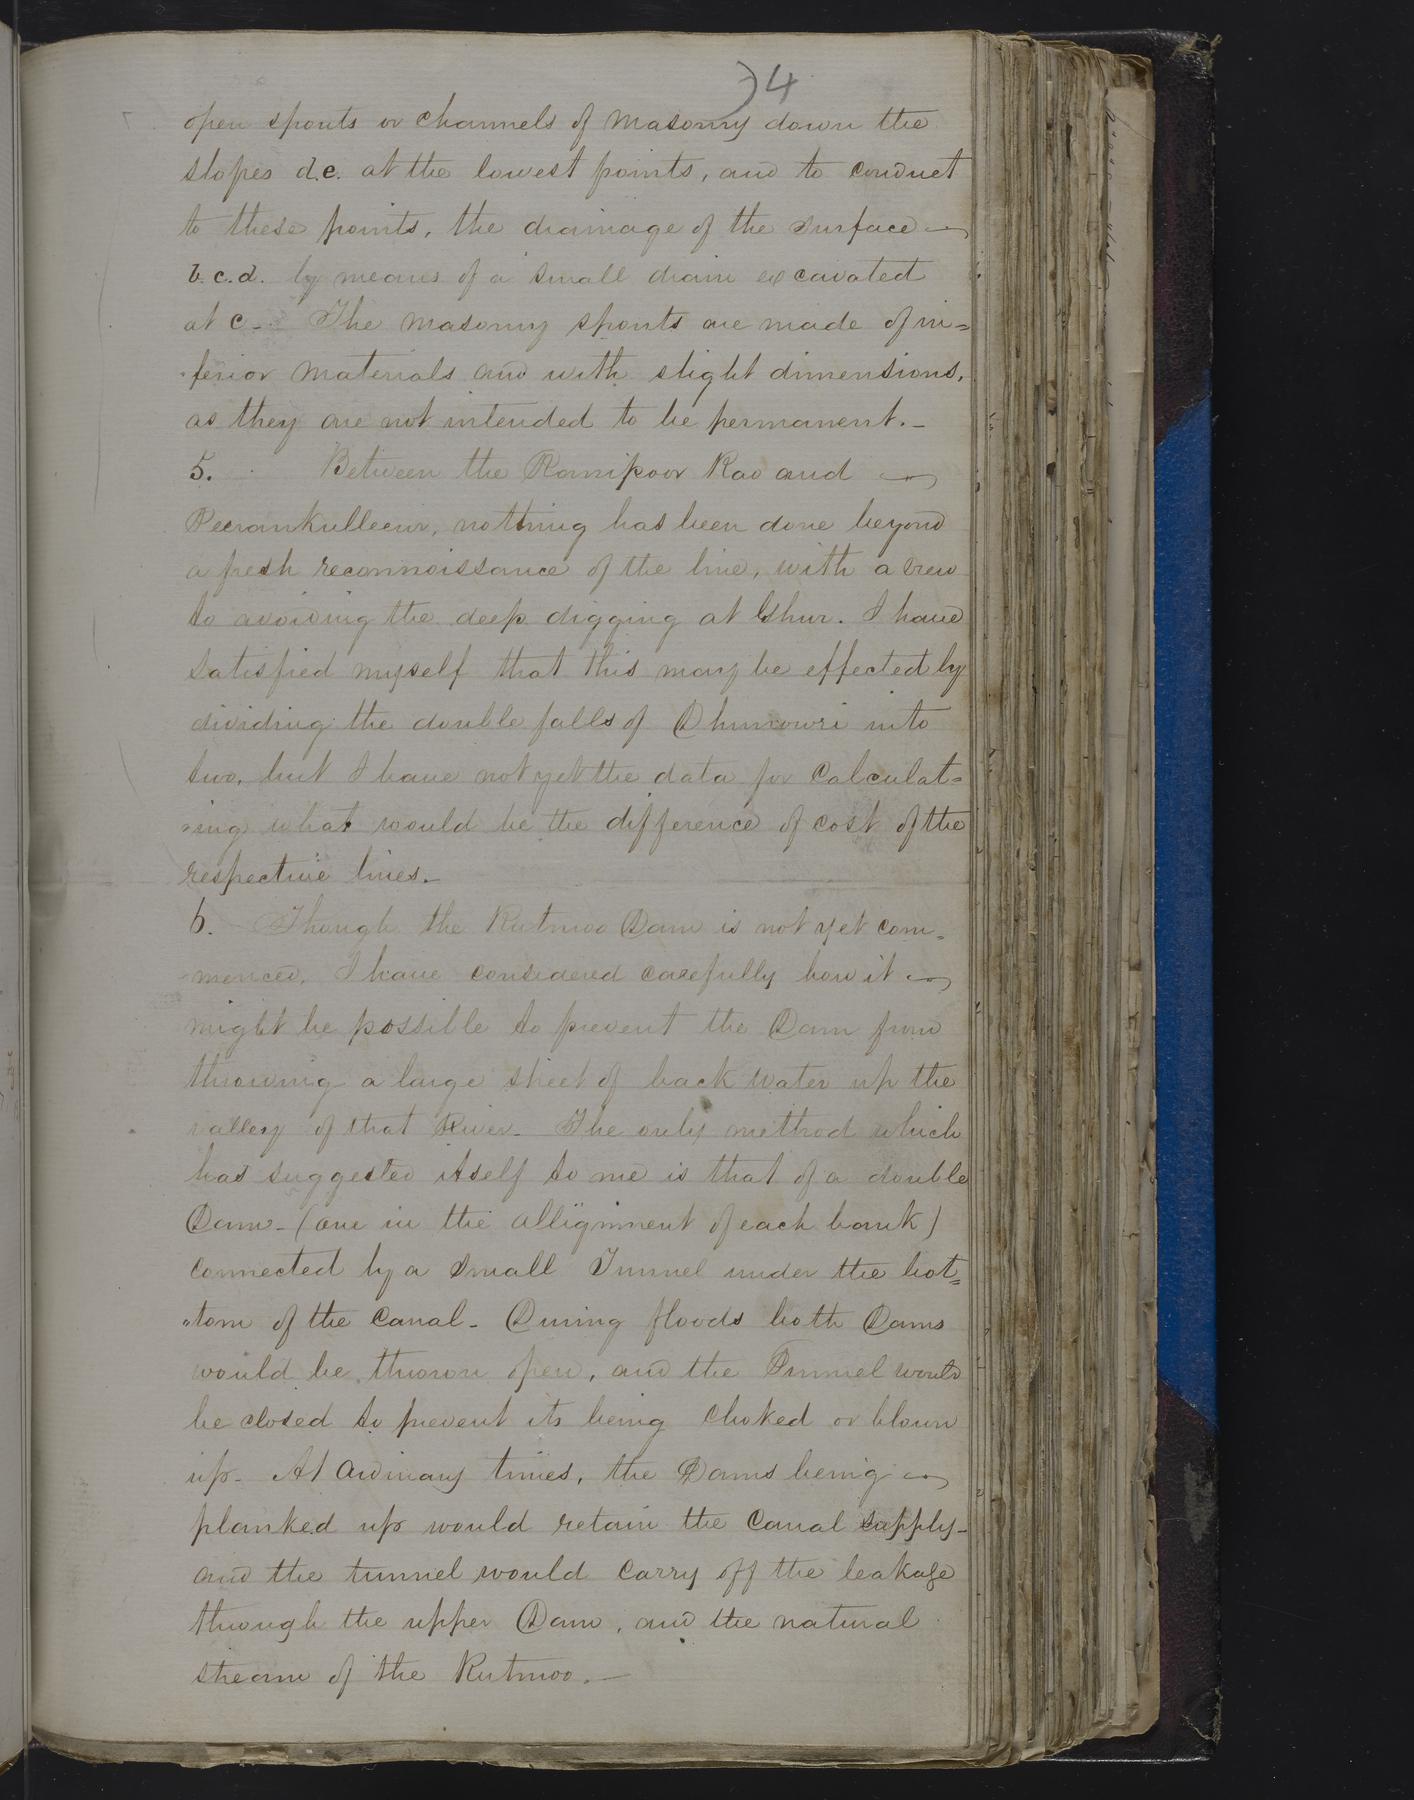 34
open spouts or channels of masonry down the
slopes d.e. at the lowest points, and to conduct
to these points, the drainage of the surface
b.c.d. by means of a small drain excavated
at c. The masonry spouts are made of in=
=ferior materials and with slight dimensions,
as they are not intended to be permanent._
5. Between the Ranipoor Rao and
Peerankulleeur, nothing has been done beyond
a fresh reconnoissance of the line, with a view
to avoiding the deep digging at . I have
satisfied myself that this may be effected by
dividing the double falls of Dhunowri into
two, but I have not yet the data for calculat=
=ing what would be the difference of cost of the
respective lines._
6. Though the Rutmoo Dam is not yet com=
=menced, I have considered carefully how it
might be possible to prevent the Dam from
throwing a large sheet of back water up the
valley of that River_ The only method which
has suggested itself to me is that of a double
Dam_ (one in the allignment of each bank)
connected by a small Tunnel under the bot=
=tom of the canal_ During floods both Dams
would be thrown open, and the Tunnel would
be closed to prevent its being choked or blown
up_ At ordinary times, the Dams being
planked up would retain the canal supply_
and the tunnel would carry off the leakage
through the upper Dam, and the natural
stream of the Rutmoo._